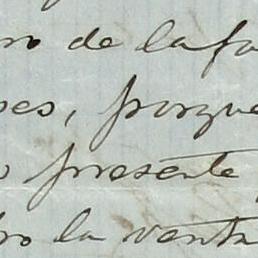 ro de la fa
es, porque
o presente
ro la venta